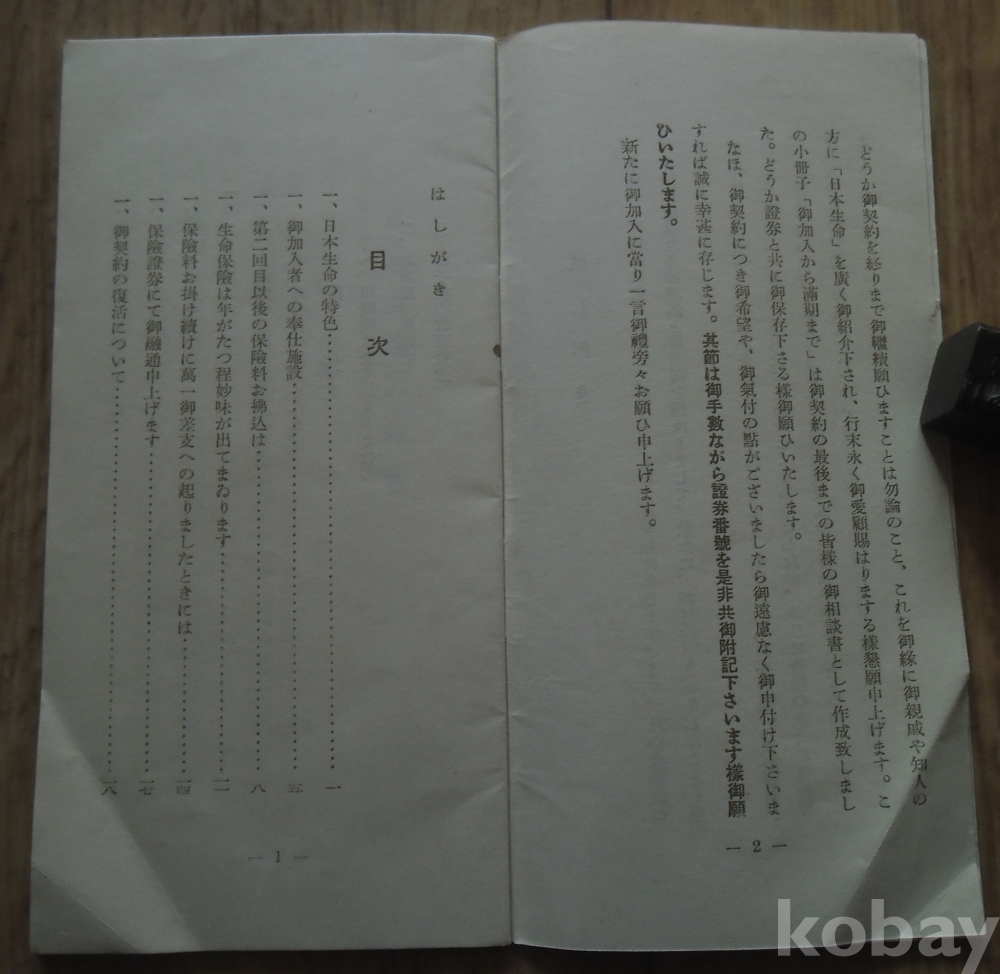 どうか御契約を終りまで御繼續願ひますことは勿論のこと、これを御緣に御親戚や知人の
方に「日本生命」を廣く御紹介下され、行末永く御愛顧賜はりまする樣懇願申上げます。こ
の小冊子「御加入から滿期まで」は御契約の最後までの皆樣の御相談書として作成致しまし
た。どうか證券と共に御保存下さる樣御願ひいたします。
なほ、御契約につき御希望や、御氣付の點がございましたら御遠慮なく御申付け下さいま
すれば誠に幸甚に存じます。其節は御手數ながら證券番號を是非共御附記下さいます樣御願
ひいたします。
新たに御加入に當り一言御禮旁々お願ひ申上げます。
— 2 —
はしがき
目次
一、日本生命の特色……一
一、御加入者への奉仕施設……五
一、第二回目以後の保險料お拂込は……八
一、生命保險は年がたつ程妙味が出てまゐります……一一
一、保險料お掛け續けに萬一御差支への起りましたときには……一四
一、保險證券にて御融通申上げます……一七
一、御契約の復活について……一八
— 1 —
kobay